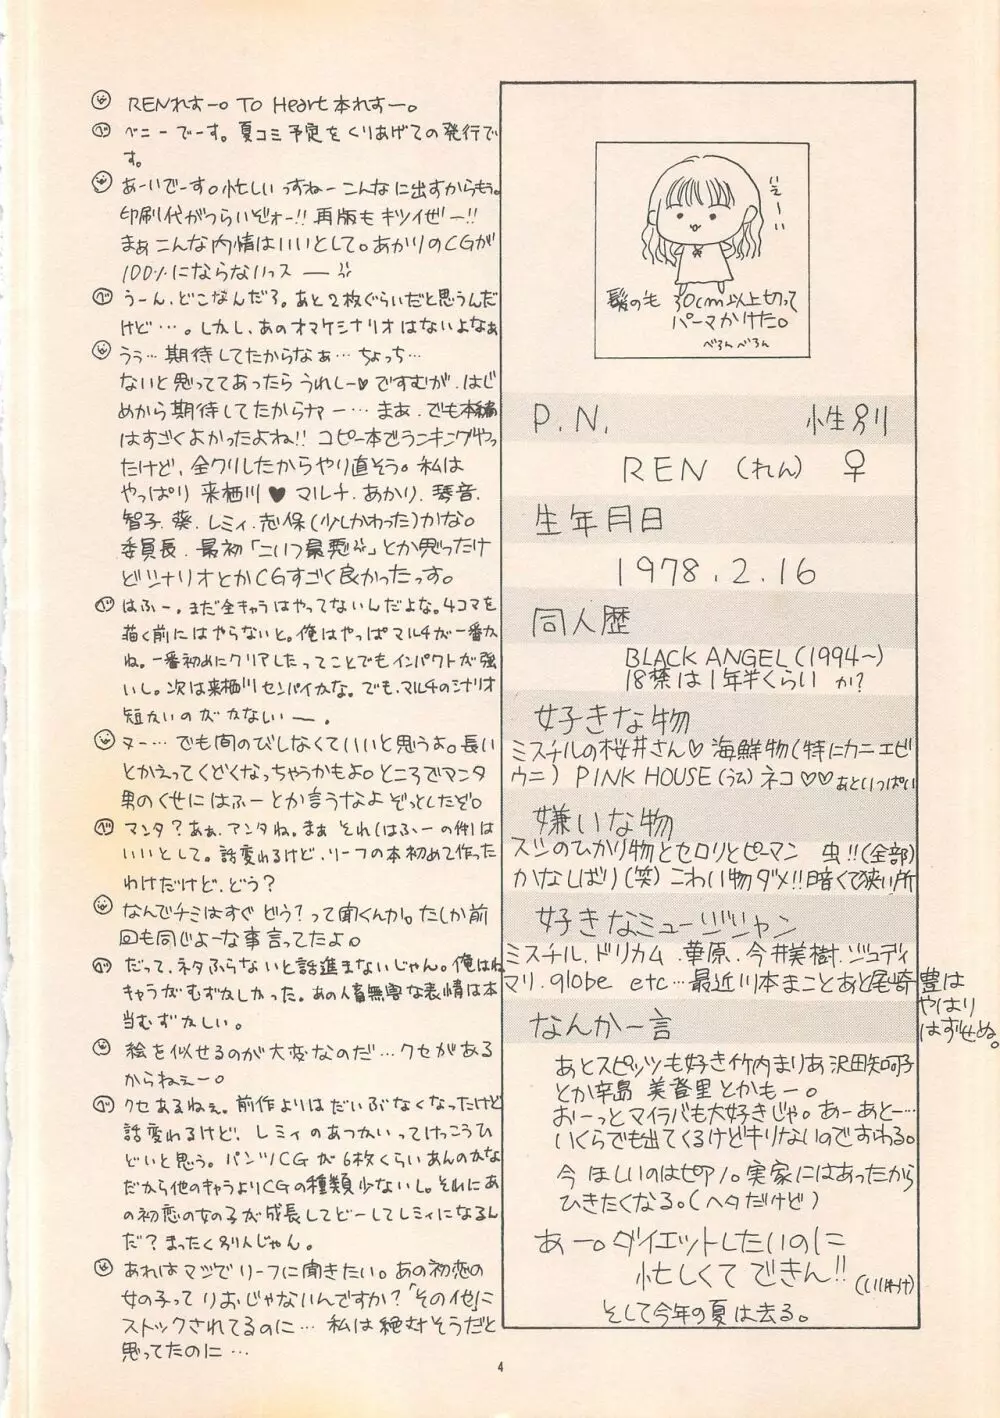 RENれすー。To Heart本れすー。
ベニーでーす。夏コミ予定をくりあげての発行で
す。
あーいでーす。忙しいっすねーこんなに出すからもう。
印刷代がつらいぞォー!!再版もキツイぜー!!
まぁこんな内情はいいとして。あかりのCGが
100%にならないっスー
うーん、どこなんだろ。あと2枚ぐらいだと思うんだ
けど…。しかし、あのオマケシナリオはないよなぁ
うぅ…期待してたからなぁ…ちょっち…
ないと思っててあったらうれしー♥ですむが、はじ
めから期待してたからナァー…まぁ、でも本編
はすごくよかったよね!!コピー本でランキングやっ
たけど、全クリしたからやり直そう。私は
やっぱり来栖川♥マルチ.あかり.琴音.
智子.葵.レミィ.志保(少しかわった)かな。
委員長.最初「こいつ最悪」とか思ったけ
どシナリオとかCGすごく良かったっす。
はふー.まだ全キャラはやってないんだよな。4コマを
描く前にはやらないと。俺はやっぱマルチが一番か
ね。一番初めにクリアしたってことでもインパクトが強
いし。次は来栖川センパイかな。でも、マルチのシナリオ
短かいのがかなしいー。
ヌー…でも間のびしなくていいと思うよ。長い
とかえってくどくなっちゃうかもよ。ところでマンタ
男のくせにはふーとか言うなよぞっとしたぞ。
マンタ?あぁ、アンタね。まぁそれ(はふーの件)は
いいとして。話変わるけど、リーフの本初めて作った
わけだけど、どう?
なんでチミはすぐどう?って聞くんか。たしか前
回も同じよーな事言ってたよ。
だって、ネタふらないと話進まないじゃん。俺はね
キャラがむずかしかった。あの人畜無害な表情は本
当むずかしい。
絵を似せるのが大変なのだ…クセがある
からねぇー。
クセあるねぇ。前作よりはだいぶなくなったけど
話変わるけど、レミィのあつかいってけっこうひ
どいと思う。パンツCGが6枚くらいあんのかな
だから他のキャラよりCGの種類少ないし。それにあ
の初恋の女の子が成長してどーしてレミィになるん
だ?まったく別人じゃん。
あれはマジでリーフに聞きたい。あの初恋の
女の子ってりおじゃないんですか?「その他」に
ストックされてるのに…私は絶対そうだと
思ってたのに…
いぇーい
髪の毛 30cm以上切って
パーマかけた。
べろんべろん
P.N. 性別
REN(れん) ♀
生年月日
1978.2.16
同人歴
BLACK ANGEL(1994〜)
18禁は1年半くらいか?
好きな物
ミスチルの桜井さん♡海鮮物(特にカニエビ
ウニ)PINK HOUSE(うム)ネコ♡♡あといっぱい
嫌いな物
スシのひかり物とセロリとピーマン 虫!!(全部)
かなしばり(笑)こわい物ダメ!!暗くて狭い所
好きなミュージシャン
ミスチル.ドリカム.華原.今井美樹.ジュディ
マリ.globe etc…最近川本まことあと尾崎豊は
やはり
はずせぬ。
なんか一言
あとスピッツも好き竹内まりあ沢田知可子
とか辛島 美登里とかもー。
おーっとマイラバも大好きじゃ。あーあとー…
いくらでも出てくるけどキリないのですわる。
今ほしいのはピアノ。実家にはあったから
ひきたくなる。(ヘタだけど)
あー。ダイエットしたいのに
忙しくてできん!!(いいわけ)
そして今年の夏は去る。
4